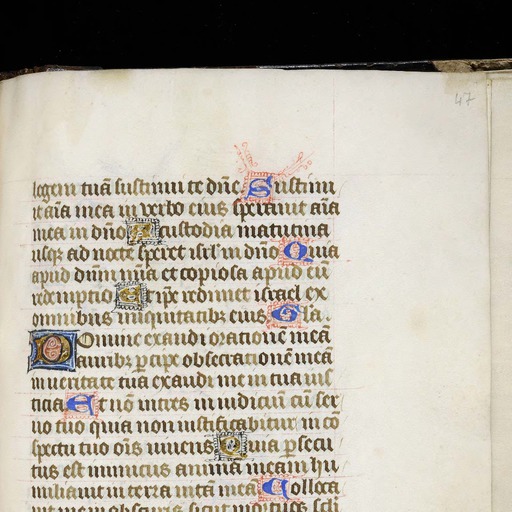 47
legem tuā sustinui te dn̄e Sustinu
it aīa mea in verbo eius speravit aīa
mea in dn̄o A custodia matutina
usq; ad noctē speret isrl' in dn̄o Quia
apud dn̄m mīa et copiosa apud eū
redemptio Et ip̄e redimet israel ex
omnibus iniquitatibz eius Gła.
Domine exaudi orationē meā
auribz ꝑcipe obsecrationē meā
in veritate tua exaudi me in tua ius
ticia Et nō intres in iudiciū cū ser
uo tuo quia non iustificabitur in cō
spectu tuo oīs uiuens Quia ꝑsecu
tus est inimicus animā meam hu
miliauit in terra uitā meā Colloca
uit me in obscuris sicut mortuos scłi